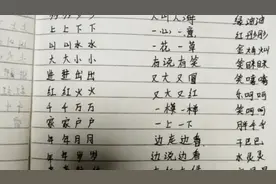 上上下下 一心一意 红彤彤
叫叫水水 一花一草 金灿灿
大大小小 有说有笑 笑眯眯
进进出出 又大又圆 笑嘻嘻
红红火火 又大又红 乐呵呵
千千万万 一模一样 笑呵呵
家家户户 一上一下 胖乎乎
年年月月 边走边看 干巴巴
年年岁岁 边说边看 水灵灵